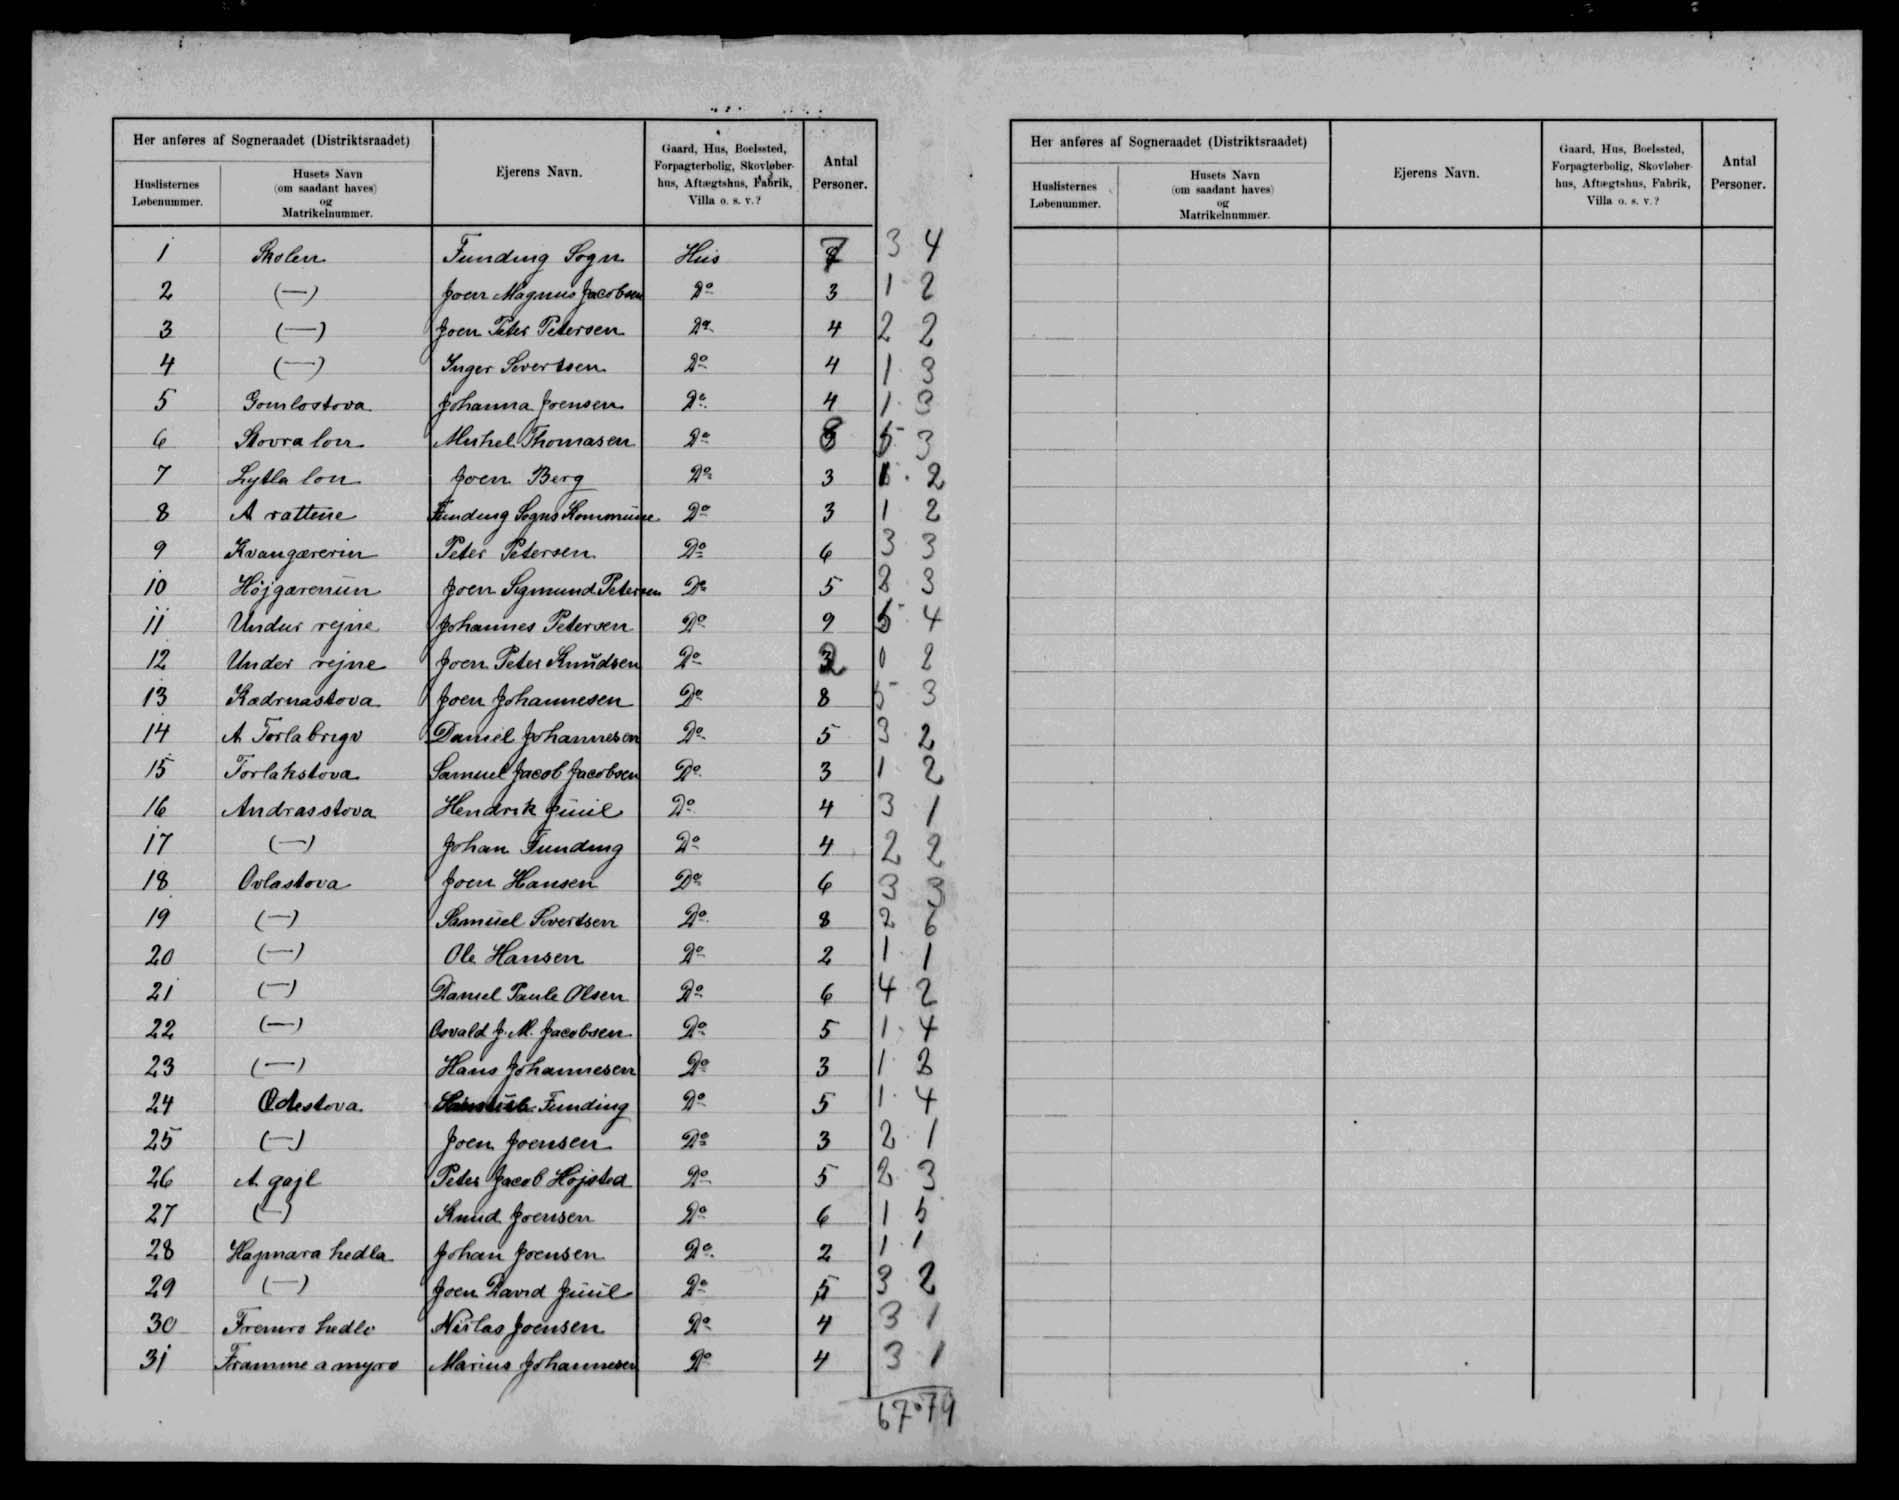 Her anføres af Sogneraadet (Distriktsraadet)
Huslisternes Løbenummer.
Husets Navn (om saadant haves) og Matrikelnummer.
Ejerens Navn.
Gaard, Hus, Boelssted, Forpagterbolig, Skovløber-hus, Aftægtshus, Fabrik, Villa o. s. v.?
Antal Personer.
1 Skolen Funding Sogn Hus 7 3 4
2 (—) Joen Magnus Jacobsen Do 3 1 2
3 (—) Joen Peter Petersen Do 4 2 2
4 (—) Inger Sivertsen Do 4 1 3
5 Gomlostova Johanna Joensen Do 4 1 3
6 Stovra lon Michel Thomasen Do 8 5 3
7 Lytla lon Joen Berg Do 3 1 2
8 A rattene Funding Sogns Kommune Do 3 1 2
9 Kvangærerin Peter Petersen Do 6 3 3
10 Højgærenun Joen Sigmund Petersen Do 5 2 3
11 Undur rejne Johannes Petersen Do 9 5 4
12 Under rejne Joen Peter Knudsen Do 2 0 2
13 Kadrnastova Joen Johannesen Do 8 5 3
14 A Torlabrigv Daniel Johannesen Do 5 3 2
15 Torlakstova Samuel Jacob Jacobsen Do 3 1 2
16 Andrasstova Hendrik Juul Do 4 3 1
17 (—) Johan Funding Do 4 2 2
18 Ovlastova Joen Hansen Do 6 3 3
19 (—) Samuel Sivertsen Do 8 2 6
20 (—) Ole Hansen Do 2 1 1
21 (—) Daniel Paule Olsen Do 6 4 2
22 (—) Osvald J. M. Jacobsen Do 5 1 4
23 (—) Hans Johannesen Do 3 1 2
24 Funding Do 5 1 4
25 (—) Joen Joensen Do 3 2 1
26 A gajl Peter Jacob Højsted Do 5 2 3
27 (—) Knud Joensen Do 6 1 5
28 Hajmara hedla Johan Joensen Do 2 1 1
29 (—) Joen David Juul Do 5 3 2
30 Fremro hedlo Niclas Joensen Do 4 3 1
31 Framme a myro Marius Johannesen Do 4 3 1
67 79
Her anføres af Sogneraadet (Distriktsraadet)
Huslisternes Løbenummer.
Husets Navn (om saadant haves) og Matrikelnummer.
Ejerens Navn.
Gaard, Hus, Boelssted, Forpagterbolig, Skovløber-hus, Aftægtshus, Fabrik, Villa o. s. v.?
Antal Personer.